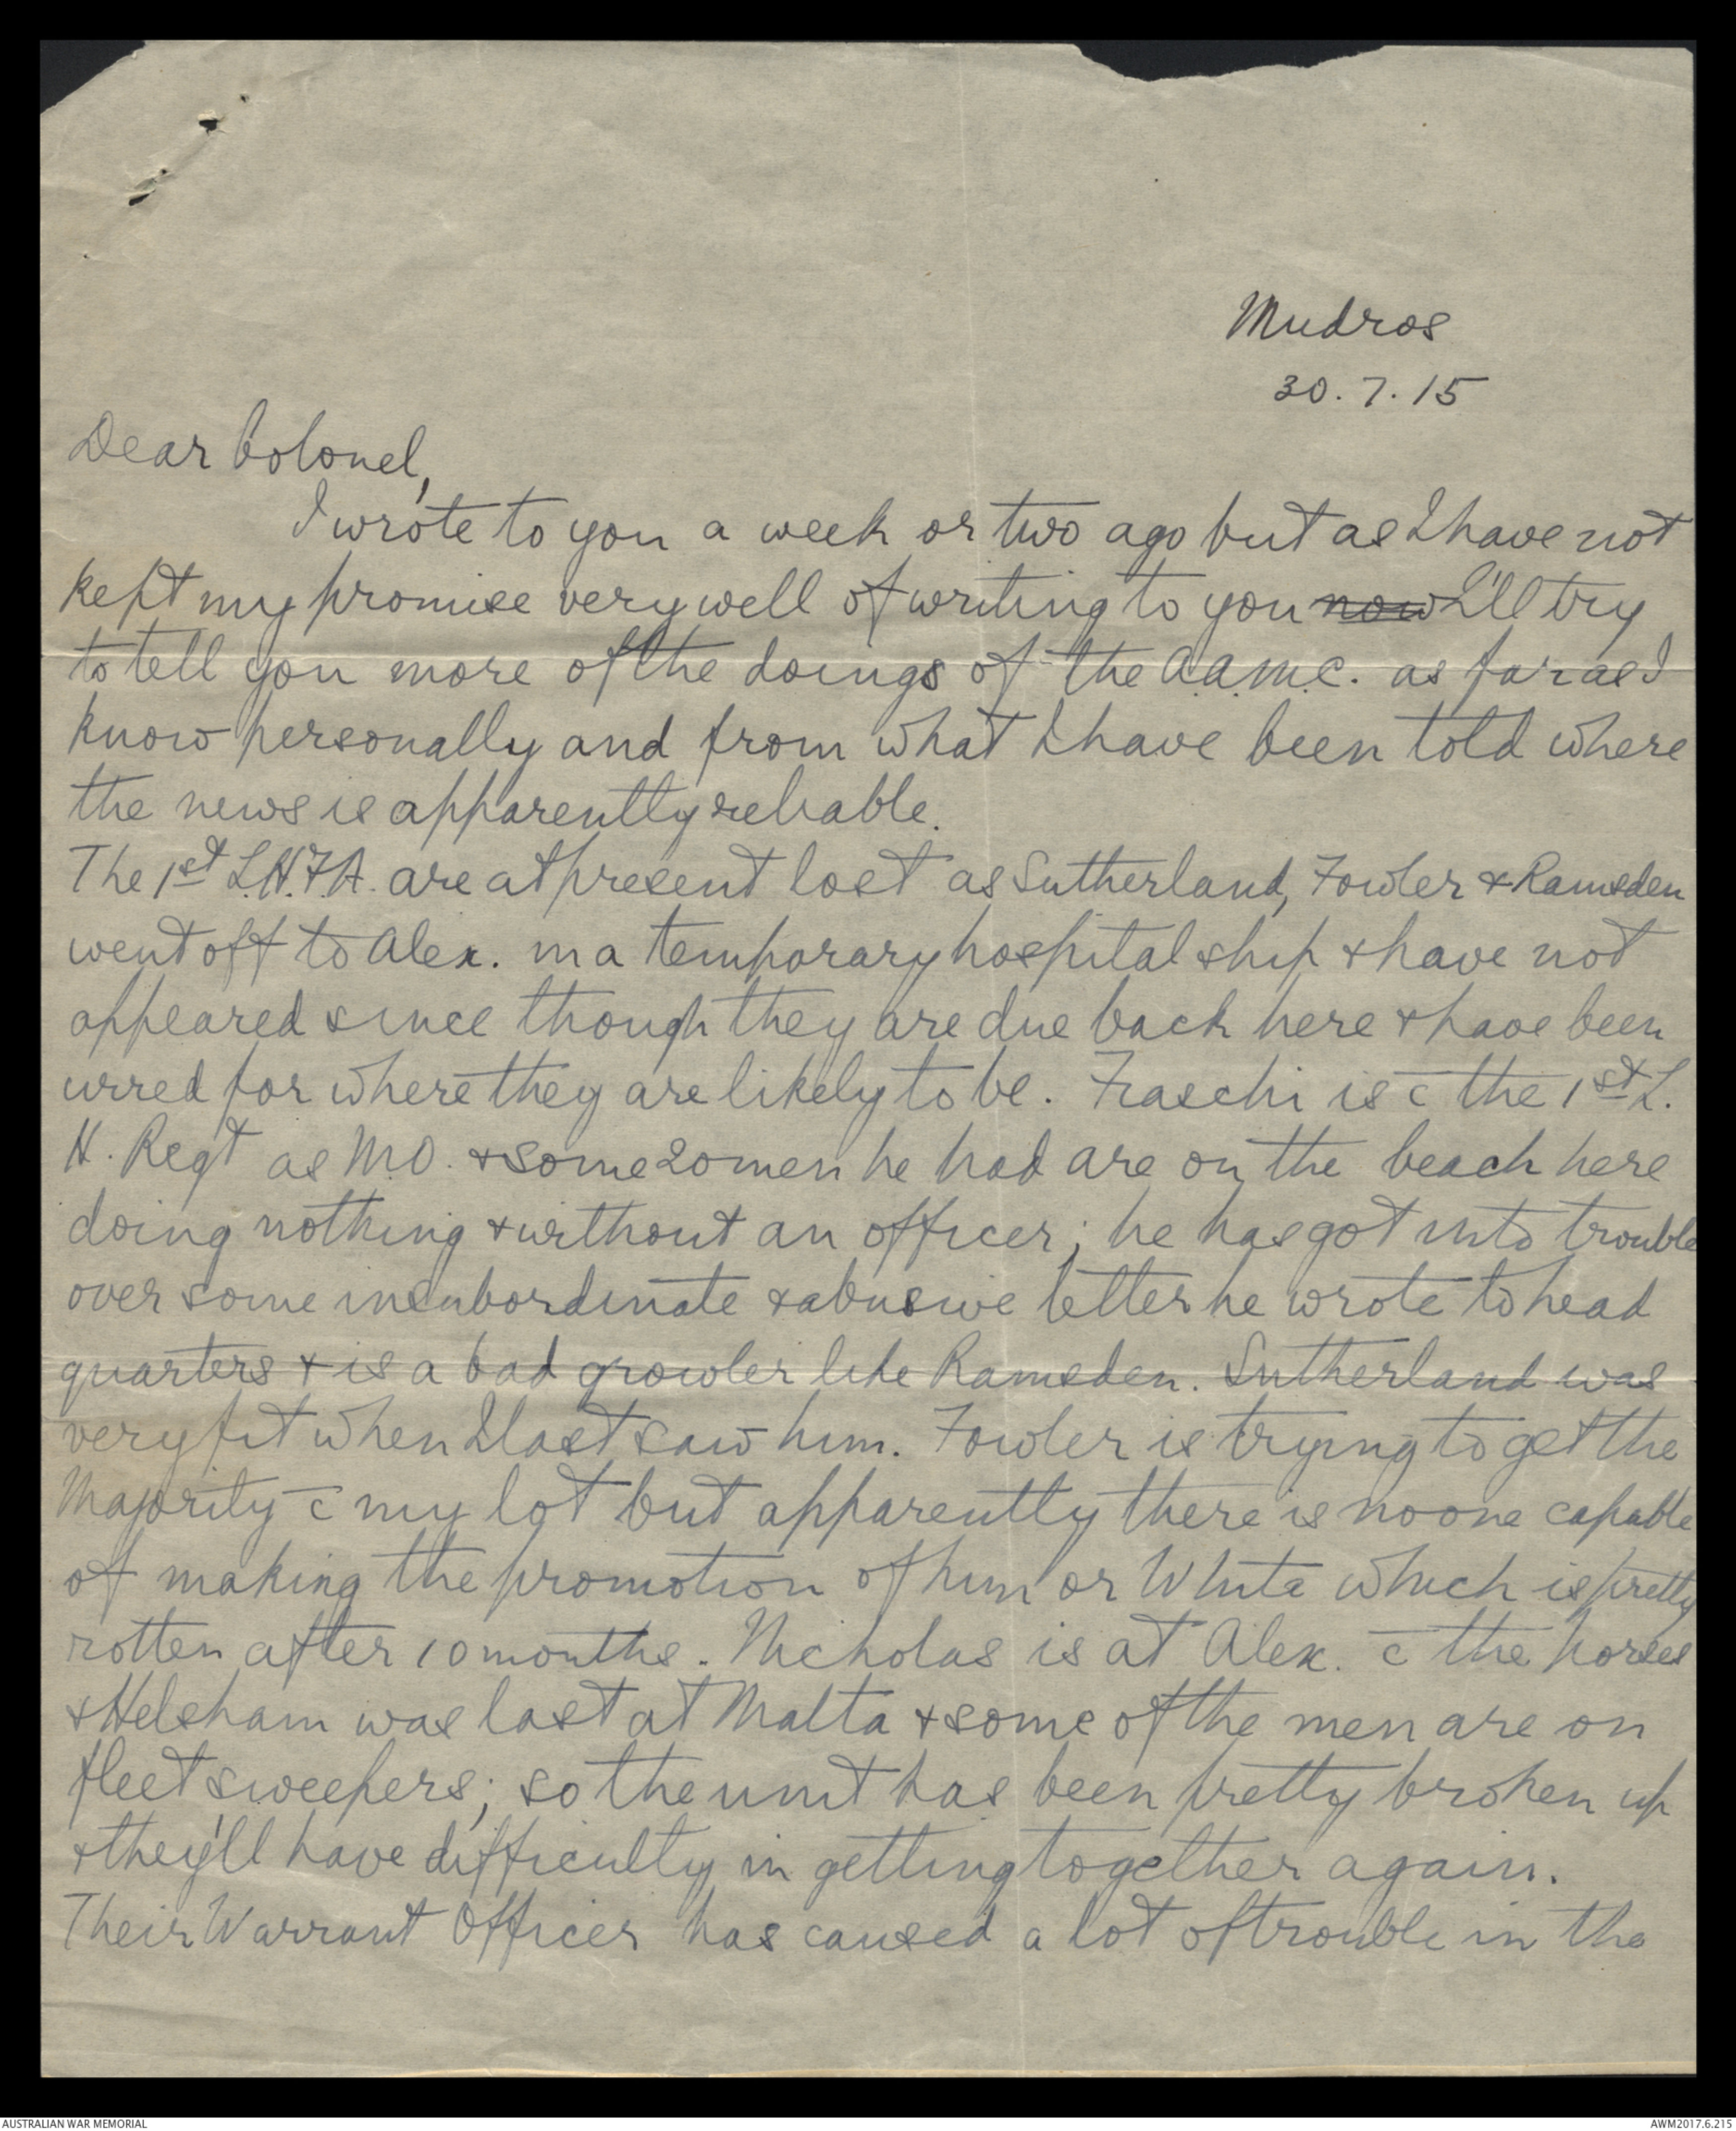 Mudros
30.7.15
Dear Colonel,
I wrote to you a week or two ago but as I have not
kept my promise very well of writing to you now I'll try
to tell you more of the doings of the A.A.M.C. as far as I
know personally and from what I have been told where
the news is apparently reliable.
The 1st L.H.F.A. are at present lost as Sutherland, Fowler & Ramsden
went off to Alex. in a temporary hospital ship & have not
appeared since though they are due back here & have been
wired for where they are likely to be. Fraschi is c̄ the 1st L.
H. Regt as M.O. & some 20 men he had are on the beach here
doing nothing & without an officer; he has got into trouble
over some insubordinate & abusive letter he wrote to head
quarters & is a bad growler like Ramsden. Sutherland was
very fit when I last saw him. Fowler is trying to get the
Majority c̄ my lot but apparently there is no one capable
of making the promotion of him or White which is pretty
rotten after 10 months. Nicholas is at Alex. c̄ the horses
& Helsham was last at Malta & some of the men are on
fleet sweepers; so the unit has been pretty broken up
& they'll have difficulty in getting together again.
Their Warrant Officer has caused a lot of trouble in the
AUSTRALIAN WAR MEMORIAL
AWM2017.6.215